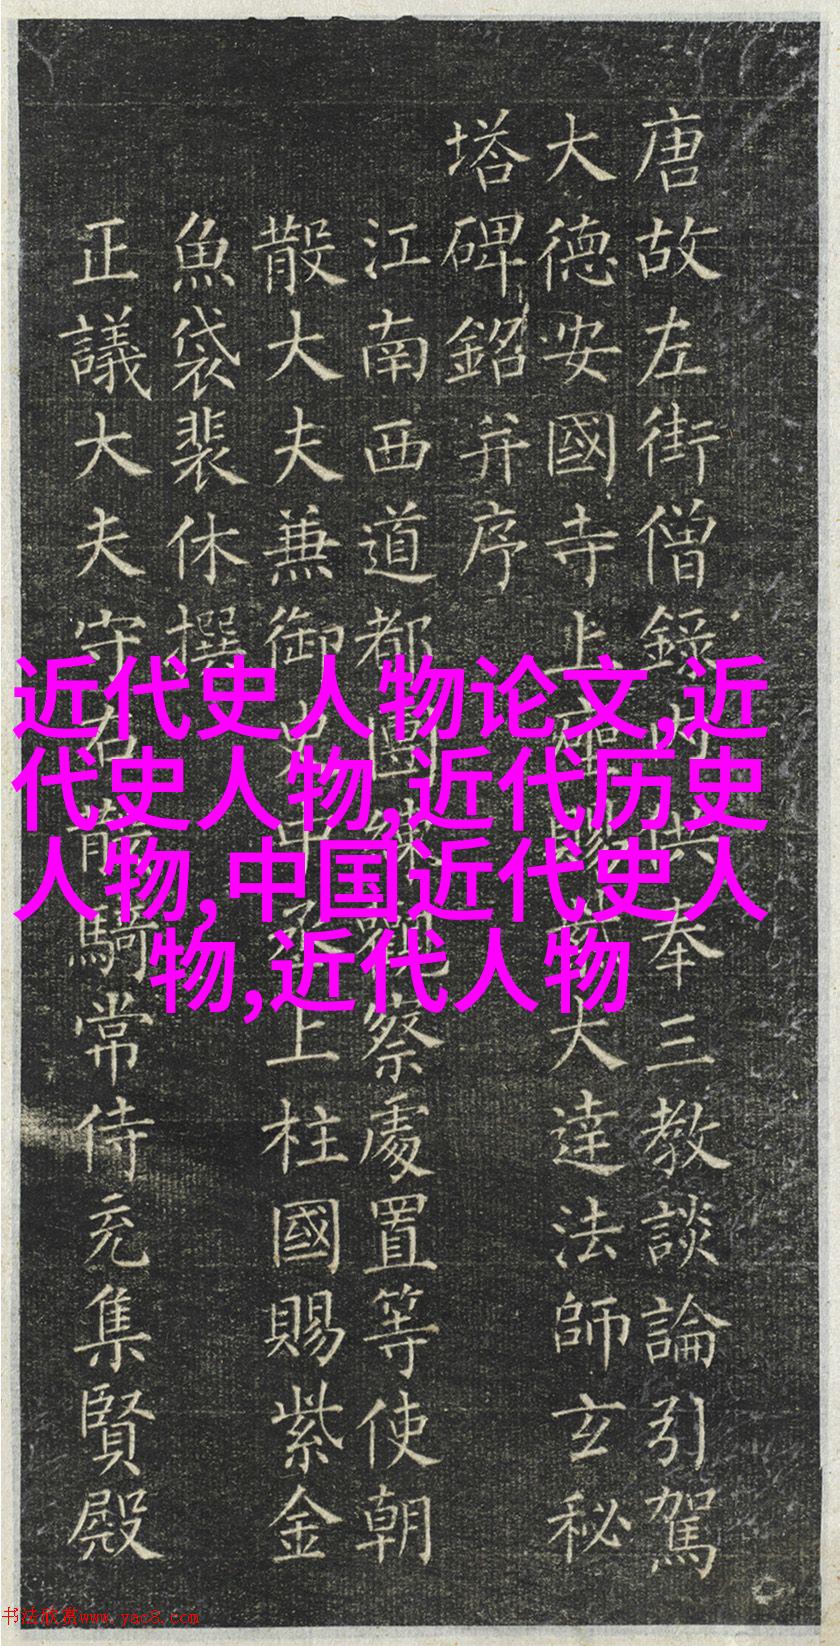 唐故左街僧錄内供奉三教談論引駕
大德安國寺上座賜大達法師玄秘
塔碑銘并序
江南西道都團練觀察處置等使朝
散大夫兼御史中丞上柱國賜紫金
魚袋裴休撰
正議大夫守右散騎常侍充集賢殿
近代史人物论文,近
代史人物,近代历史
人物,中国近代史人
物,近代人物
书法欣赏www.yac8.com